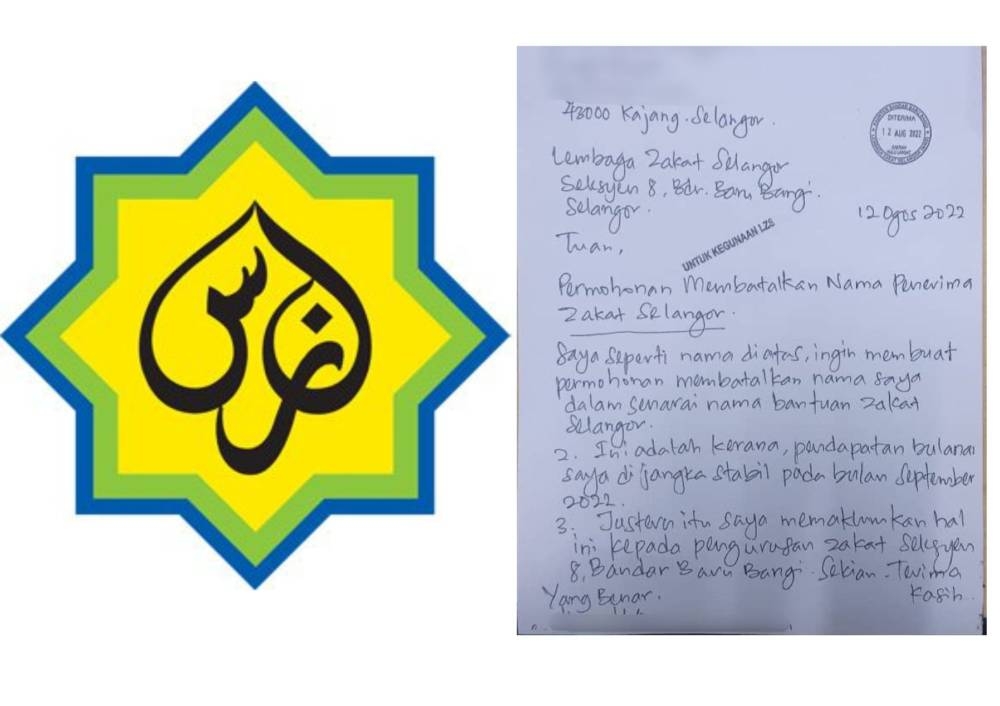 43000 Kajang. Selangor.
DITERIMA
12 AUG 2022
Lembaga Zakat Selangor
Seksyen 8, Bdr. Baru Bangi.
Selangor.
12 Ogos 2022
Tuan,
UNTUK KEGUNAAN LZS
Permohonan Membatalkan Nama Penerima
Zakat Selangor.
Saya seperti nama diatas, ingin membuat
permohonan membatalkan nama saya
dalam senarai nama bantuan zakat
Selangor.
2. Ini adalah kerana, pendapatan bulanan
saya dijangka stabil pada bulan September
2022.
3. Justeru itu saya memaklumkan hal
ini kepada pengurusan zakat Seksyen
8, Bandar Baru Bangi. Sekian. Terima
Kasih.
Yang Benar.